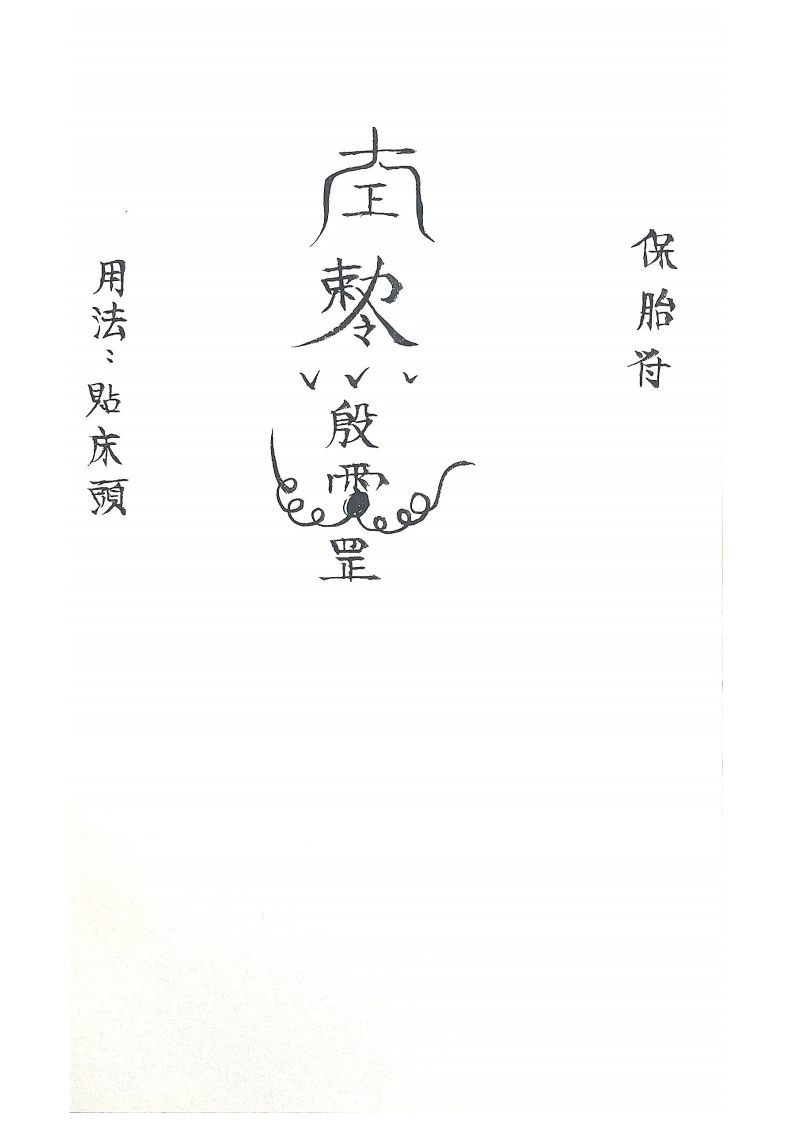 保胎符
敕令
殷
罡
用法：貼床頭